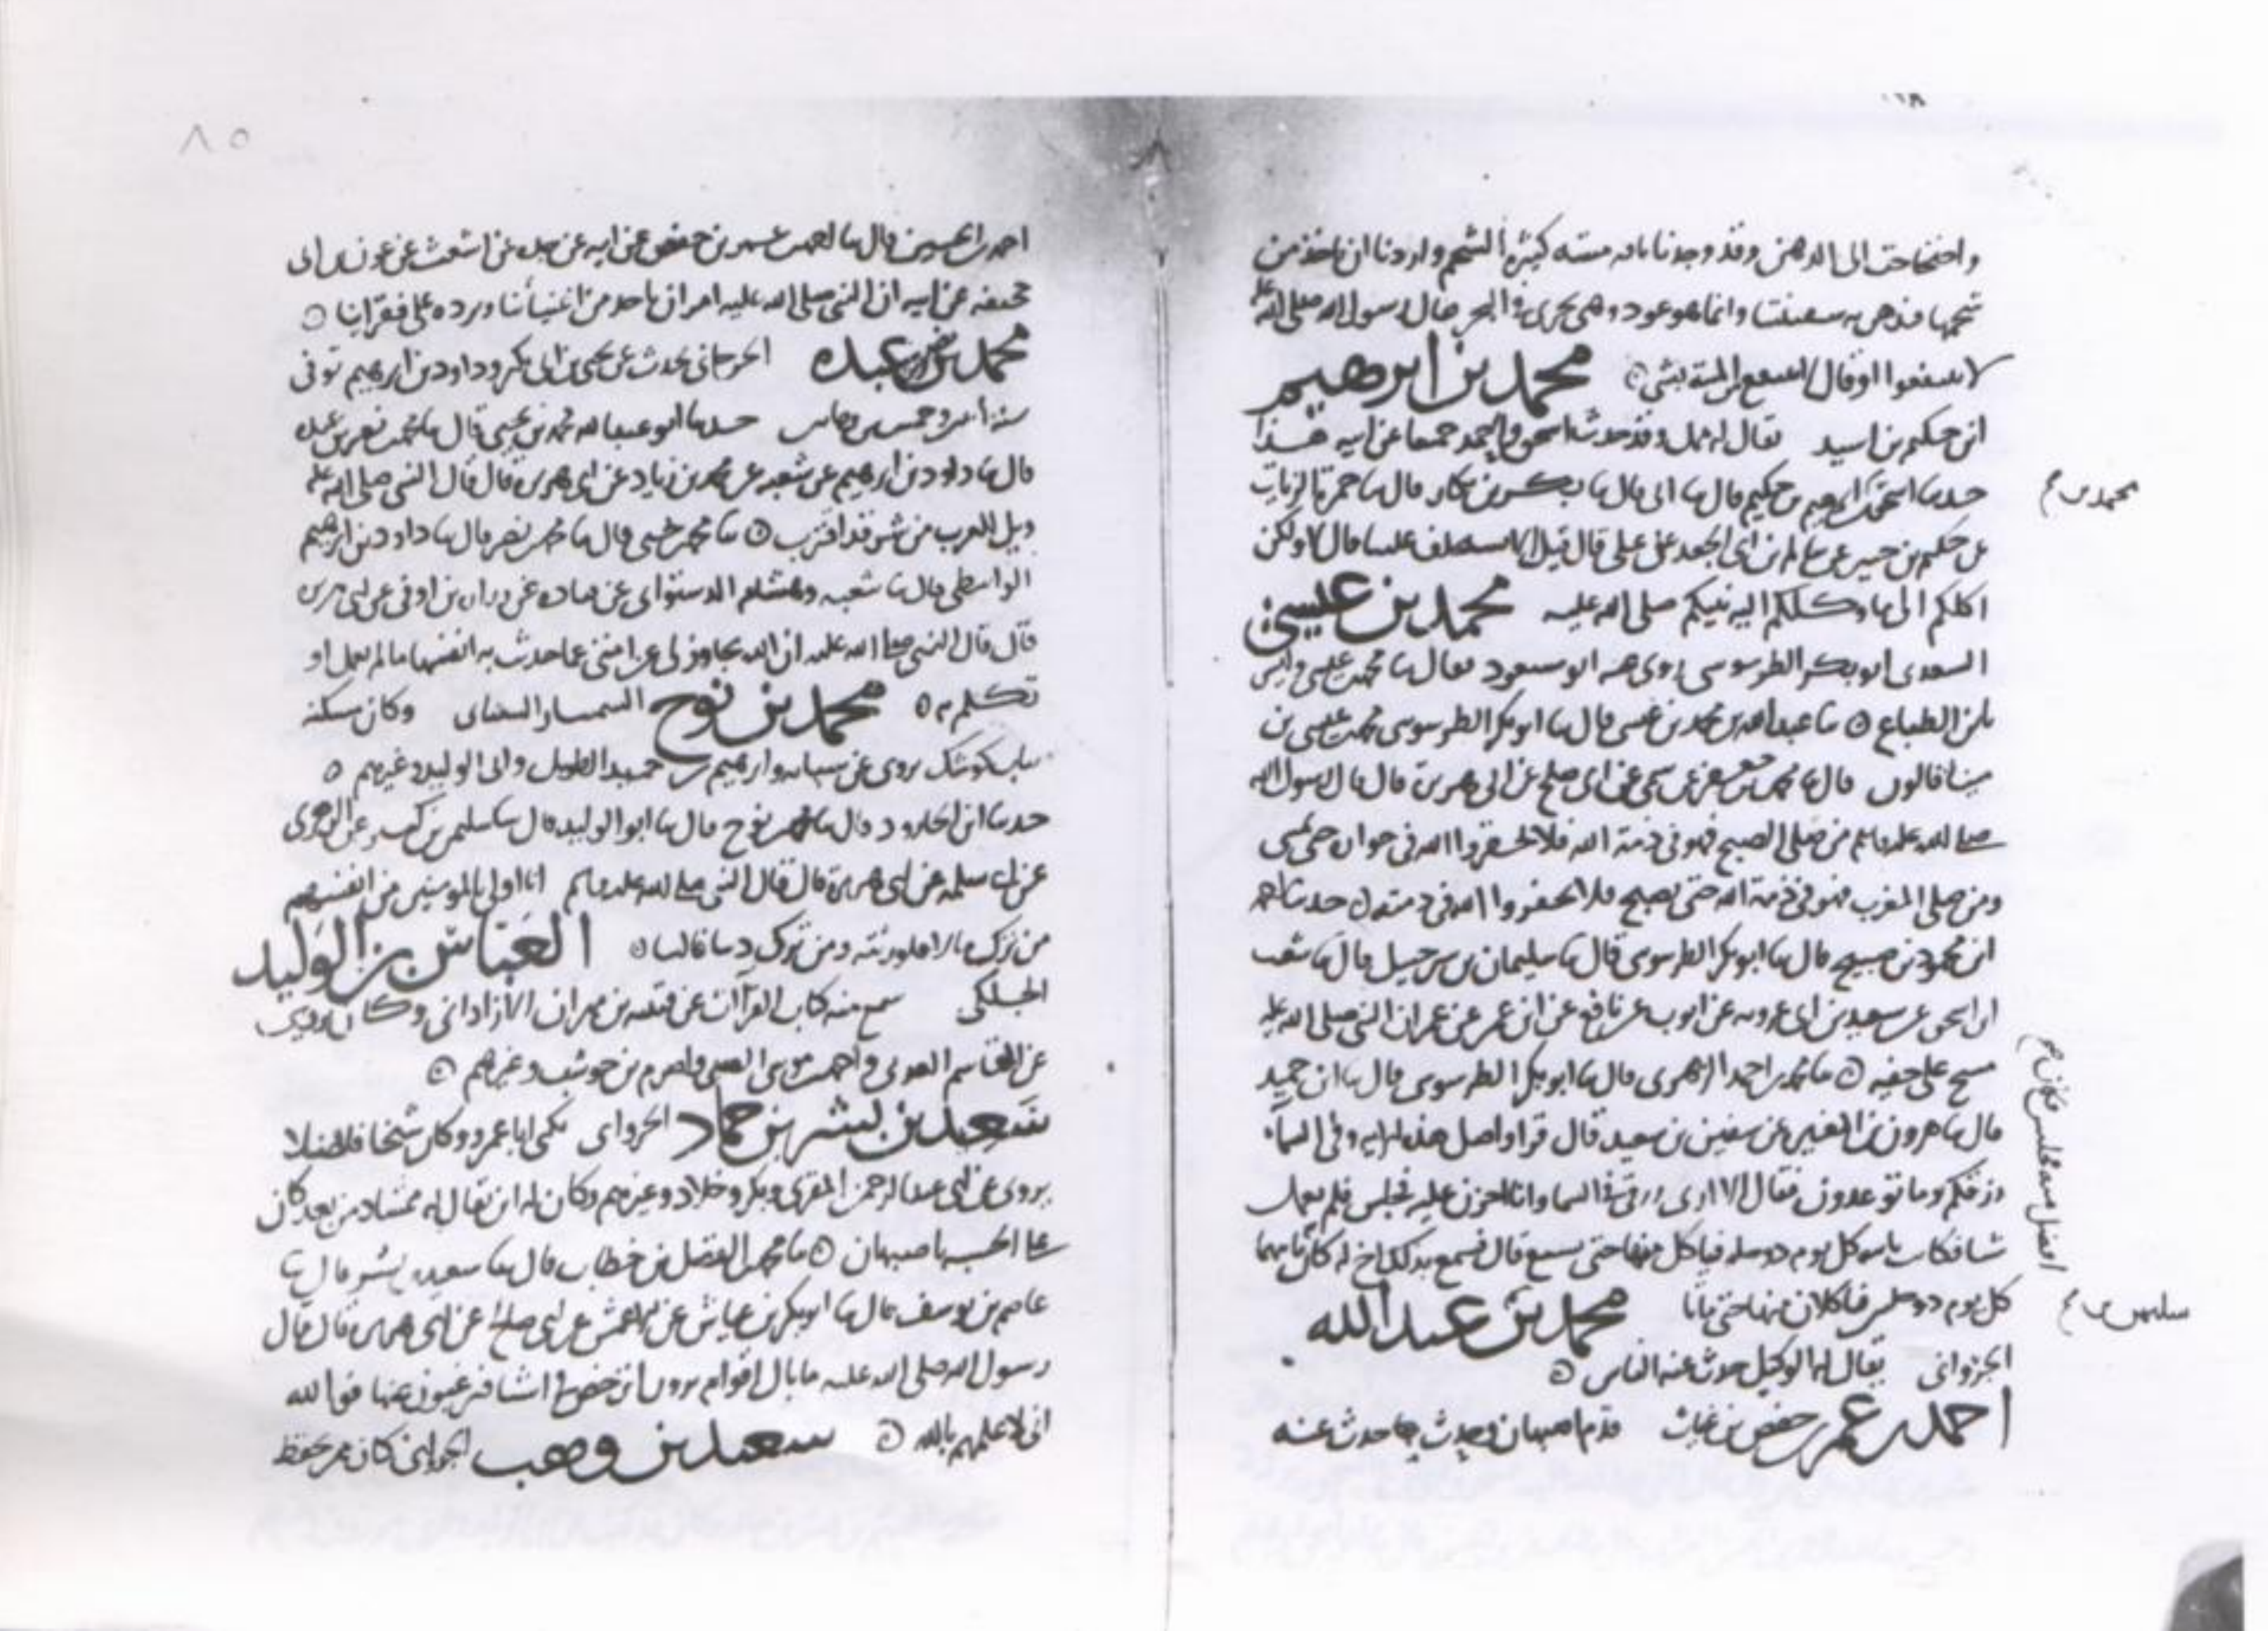 واحتجاجت الى الدهن وقد وجدنا ناقه ميته كثيرة الشحم واردنا ان ناخذ من
شحمها فندهن به سفينتنا وانما هو عود وهي تجري في البحر فقال رسول الله صلى الله عليه
لا تنتفعوا او قال لا ينتفع بالميتة بشي محمد بن ابرهيم
ابن حكيم بن اسيد يقال له ممل وقد حدث اسحق واحمد جميعا عن ابيه هذا
حدثنا اسحق بن ابرهيم بن حكيم قال ثنا ابي قال ثنا بكر بن بكار قال ثنا حمزة الزيات
محمد بن
عن حكيم بن جبير عن سالم بن ابي الجعد عن علي قال قيل الا تستخلف علينا قال لا ولكن
اكلكم الى ما وكلكم اليه نبيكم صلى الله عليه محمد بن عيسى
السعدي ابو بكر الطرسوسي روى عنه ابو مسعود فقال ثنا محمد بن عيسى وليس
بابن الطباع ثنا عبد الله بن محمد بن عيسى قال ثنا ابو بكر الطرسوسي محمد بن عيسى بن
مينا قالون قال ثنا محمد بن جعفر عن سمي عن ابي صلح عن ابي هريرة قال قال رسول الله
صلى الله عليه وسلم من صلى الصبح فهو في ذمة الله فلا تخفروا الله في جواره حتى يمسي
ومن صلى المغرب فهو في ذمة الله حتى يصبح فلا تخفروا الله في ذمته حدثنا احمد
ابن محمود بن صبيح قال ثنا ابو بكر الطرسوسي قال ثنا سليمان بن شرحبيل قال ثنا شعيب
ابن اسحق عن سعيد بن ابي عروبه عن ايوب عن نافع عن ابن عمر عن عمر ان النبي صلى الله عليه
مسح على خفيه ثنا محمد بن احمد الزهري قال ثنا ابو بكر الطرسوسي قال ثنا ابن حميد
قال ثنا هرون بن المغيرة عن سفين بن سعيد قال قرا واصل هذه الاية وفي السماء
رزقكم وما توعدون فقال الا ارى رزقي في السما وانا احزن عليه فجلس فلم يعمل
شيا فكان ياتيه كل يوم دوخله فياكل منها حتى يشبع قال فسمع بذلك اخ له كان
كل يوم دوخلتين فياكلان منها حتى ماتا محمد بن عبد الله
الجرواني يقال له الوكيل حدث عنه الناس
احمد بن عمر بن حفص بن غياث قدم اصبهان وحدث بها حدث عنه
احمد بن الحسين قال ثنا احمد بن عمر بن حفص عن ابيه عن جده عن اشعث عن عون بن ابي
جحيفه عن ابيه ان النبي صلى الله عليه امر ان ناخذ من اغنيائنا ونرده على فقرائنا
محمد بن نصر بن عبده الجرجاني يحدث عن يحيى بن ابي بكر وداود بن ابرهيم توفي
سنه وخمسين ومايتين حدثنا ابو عبد الله محمد بن يحيى قال ثنا محمد بن نصر بن عبده
قال ثنا داود بن ابرهيم عن شعبه عن محمد بن زياد عن ابي هريرة قال قال النبي صلى الله عليه
ويل للعرب من شر قد اقترب ثنا محمد بن يحيى قال ثنا محمد بن نصر قال ثنا داود بن ابرهيم
الواسطي قال ثنا شعبه وهشام الدستوائي عن قتاده عن زراره بن اوفى عن ابي هريرة
قال قال النبي صلى الله عليه ان الله تجاوز لي عن امتي عما حدثت به انفسها ما لم تعمل او
تكلم به محمد بن نوح السمسار وكان يسكنه
بباب كوشك يروي عن وابرهيم بن حميد الطويل وابي الوليد وغيرهم
حدثنا ابن الجارود قال ثنا محمد بن نوح قال ثنا ابو الوليد قال ثنا سليمن بن كثير عن الزهري
عن ابي سلمه عن ابي هريرة قال قال النبي صلى الله عليه وسلم انا اولى بالمومنين من انفسهم
من ترك مالا فلورثته ومن ترك دينا فالينا العباس بن الوليد
الجلكي سمع منه كتاب القرآات عن قتيبه بن مهران الازاذاني وكان يروي
عن القاسم العدني واحمد بن موسى الضبي واصرم بن حوشب وغيرهم
سعيد بن بشر بن حماد الجرواني يكنى ابا عمرو وكان شيخا فاضلا
يروي عن ابي عبد الرحمن المقري وبكر وخلاد وغيرهم وكان له ابن يقال له ممشاد من بعد كان
على الحسبه باصبهان ثنا محمد بن الفضل بن خطاب قال ثنا سعيد بن بشر قال ثنا
عاصم بن يوسف قال ثنا ابو بكر بن عياش عن الاعمش عن ابي صلح عن ابي هريرة قال قال
رسول الله صلى الله عليه ما بال اقوام يرون اترخص في اشيا فيرغبون عنها فوالله
اني لاعلمهم بالله سعيد بن وهب الجرواني كان ممن حفظ